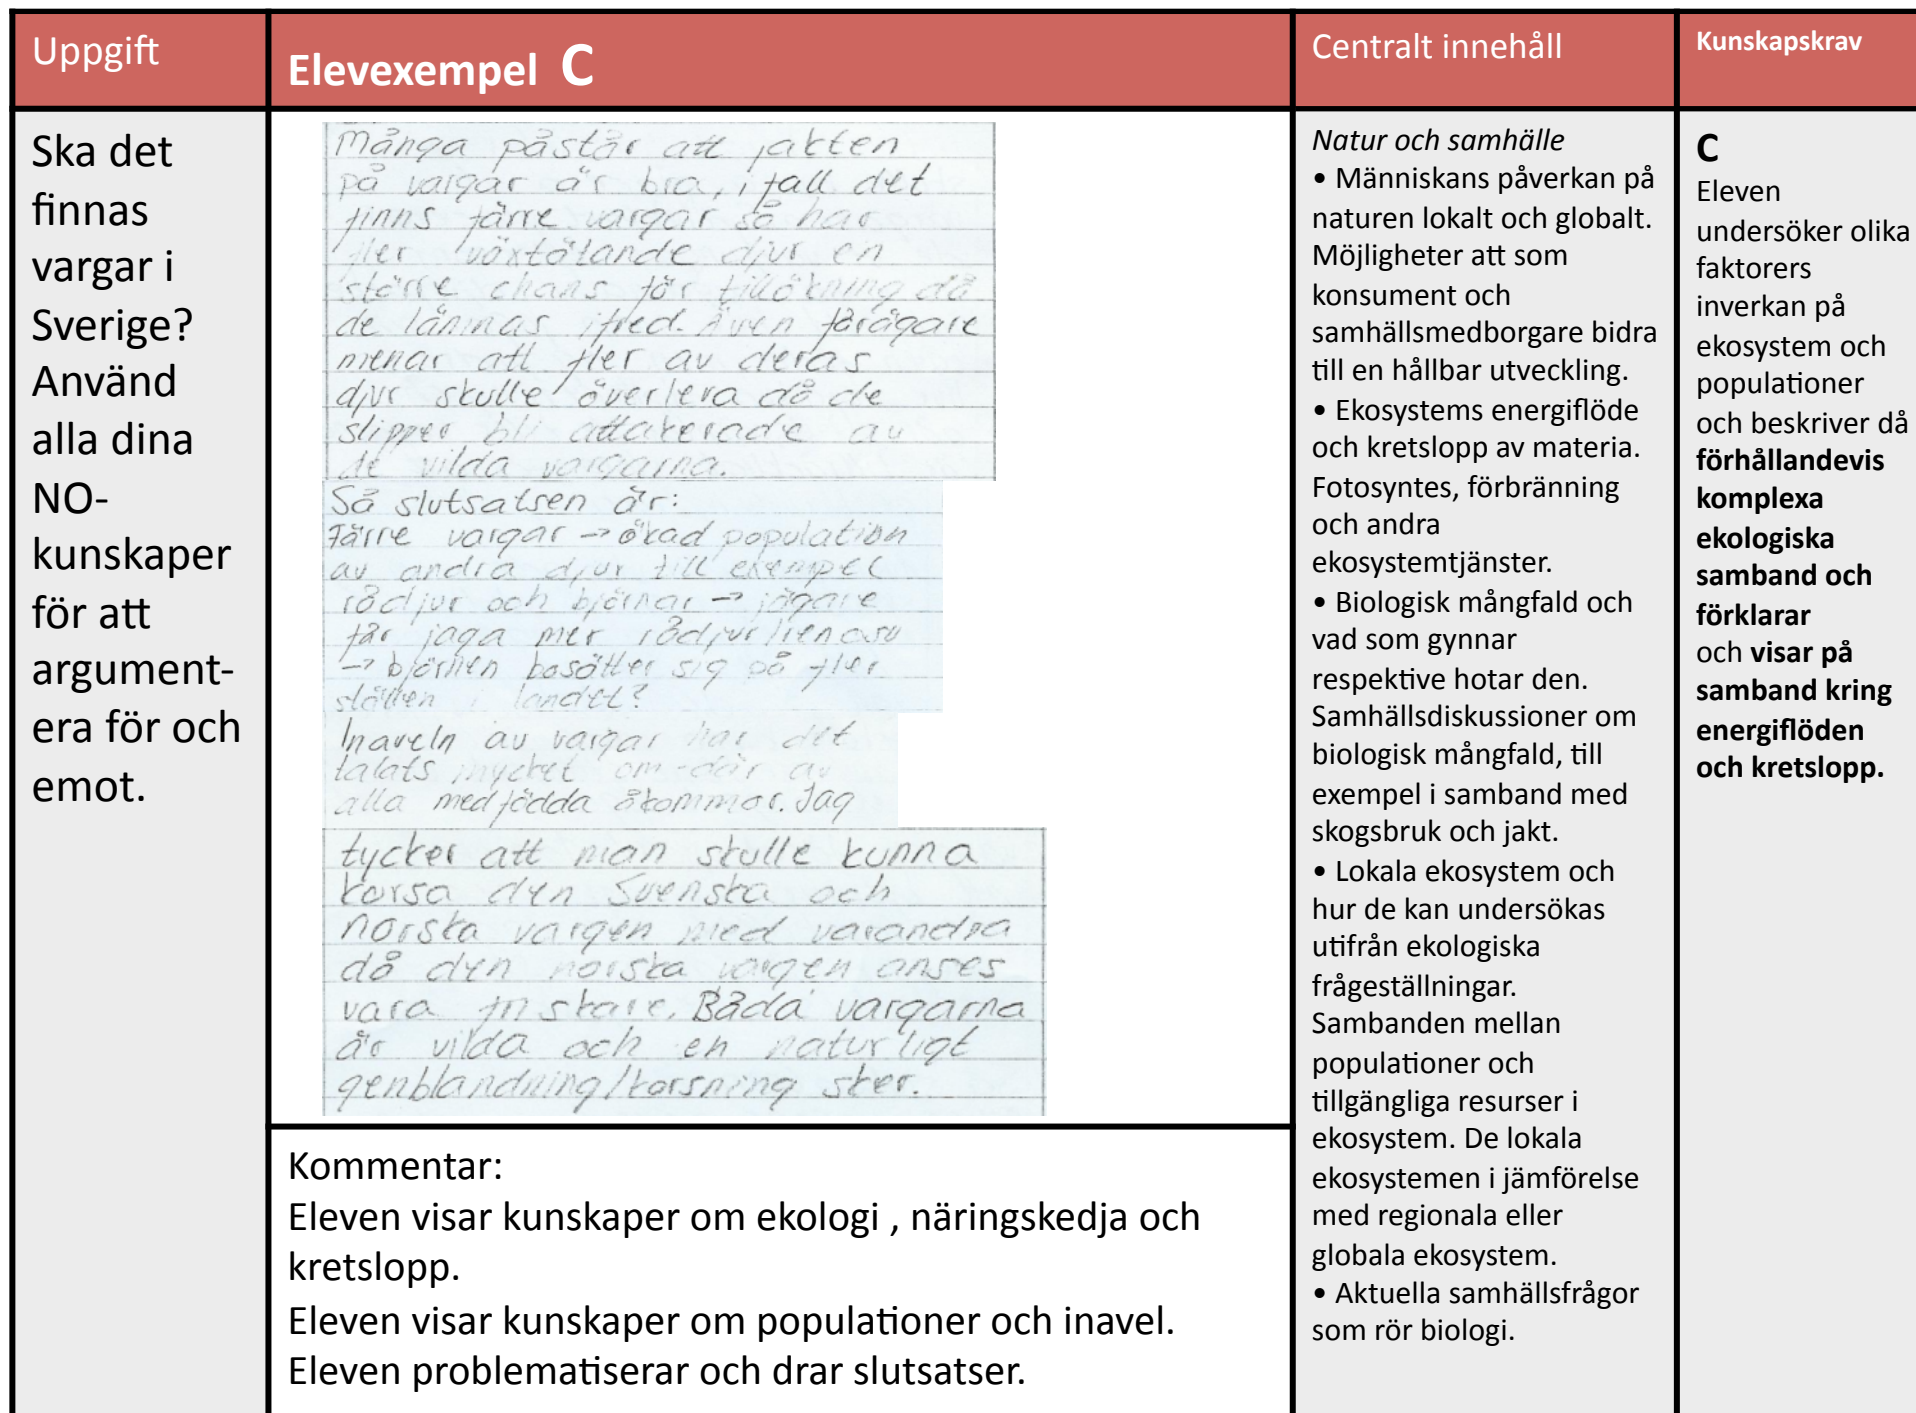 Uppgift
Elevexempel C
Centralt innehåll
Kunskapskrav
Ska det
finnas
vargar i
Sverige?
Använd
alla dina
NO-
kunskaper
för att
argument-
era för och
emot.
Många påstår att jakten
på vargar är bra, ifall det
finns färre vargar så har
fler växtätande djur en
större chans för tillökning då
de lämnas ifred. Även fårägare
menar att fler av deras
djur skulle överleva då de
slipper bli attakerade av
de vilda vargarna.
Så slutsatsen är:
Färre vargar → ökad population
av andra djur till exempel
rådjur och björnar → jägare
får jaga mer rådjur/ren osv
→ björnen bosätter sig på fler
ställen i landet?
Inaveln av vargar har det
talats mycket om - där av
alla medfödda åkommor. Jag
tycker att man skulle kunna
korsa den Svenska och
norska vargen med varandra
då den norska vargen anses
vara friskare. Båda vargarna
är vilda och en naturligt
genblandning/korsning sker.
Kommentar:
Eleven visar kunskaper om ekologi , näringskedja och
kretslopp.
Eleven visar kunskaper om populationer och inavel.
Eleven problematiserar och drar slutsatser.
Natur och samhälle
• Människans påverkan på
naturen lokalt och globalt.
Möjligheter att som
konsument och
samhällsmedborgare bidra
till en hållbar utveckling.
• Ekosystems energiflöde
och kretslopp av materia.
Fotosyntes, förbränning
och andra
ekosystemtjänster.
• Biologisk mångfald och
vad som gynnar
respektive hotar den.
Samhällsdiskussioner om
biologisk mångfald, till
exempel i samband med
skogsbruk och jakt.
• Lokala ekosystem och
hur de kan undersökas
utifrån ekologiska
frågeställningar.
Sambanden mellan
populationer och
tillgängliga resurser i
ekosystem. De lokala
ekosystemen i jämförelse
med regionala eller
globala ekosystem.
• Aktuella samhällsfrågor
som rör biologi.
C
Eleven
undersöker olika
faktorers
inverkan på
ekosystem och
populationer
och beskriver då
förhållandevis
komplexa
ekologiska
samband och
förklarar
och visar på
samband kring
energiflöden
och kretslopp.